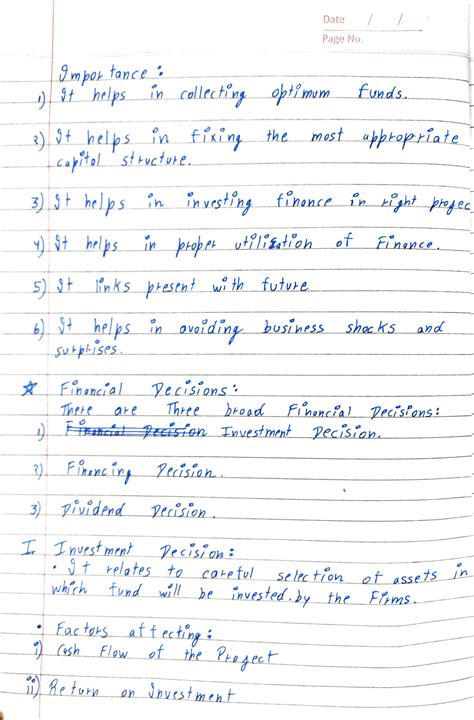 Date / / 
Page No.
Importance :
1) It helps in collecting optimum funds.
2) It helps in fixing the most appropriate
capital structure.
3) It helps in investing finance in right projec
4) It helps in proper utilization of Finance.
5) It links present with future
6) It helps in avoiding business shocks and
surprises.
☆ Financial Decisions:
There are Three broad Financial Decisions:
1) Financial Decision Investment Decision.
2) Financing Decision.
3) Dividend Decision.
I. Investment Decision:
• It relates to careful selection of assets in
which fund will be invested by the Firms.
• Factors affecting:
i) Cash Flow of the Project
ii) Return on Investment